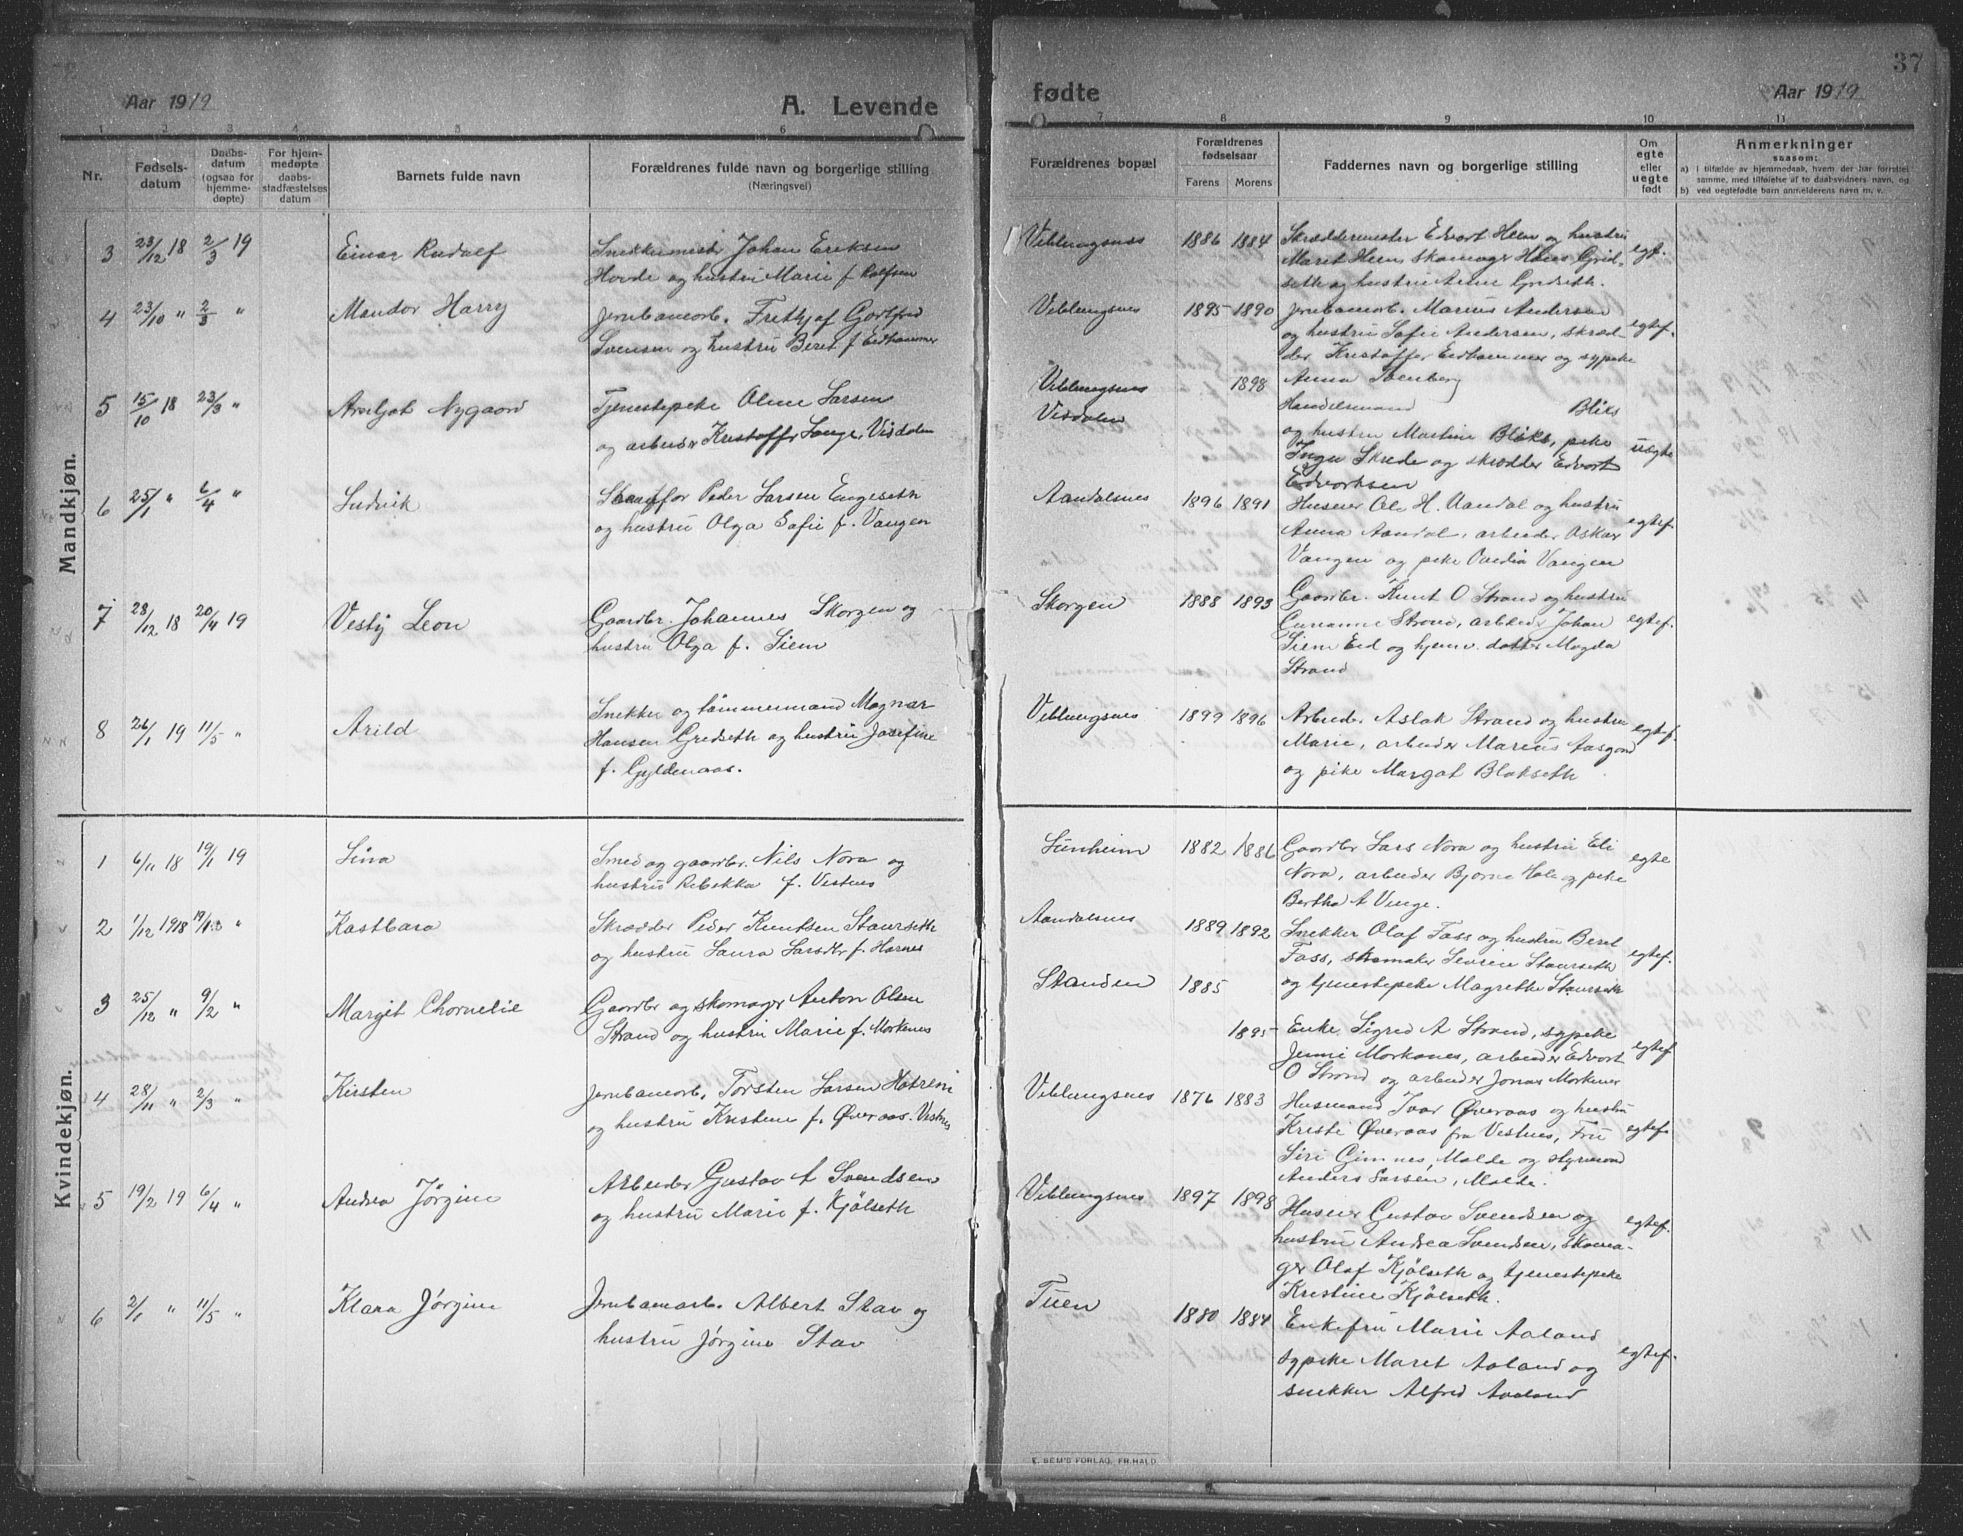 Aar 1919
A. Levende
fødte
Aar 1919
37
1 2 3 4 5 6 7 8 9 10 11
Nr.
Fødsels-
datum
Daabs-
datum
(ogsaa for
hjemme-
døpte)
For hjem-
medøpte
daabs-
stadfæstelses
datum
Barnets fulde navn
Forældrenes fulde navn og borgerlige stilling
(Næringsvei)
Forældrenes bopæl
Forældrenes
fødselsaar
Farens Morens
Faddernes navn og borgerlige stilling
Om
egte
eller
uegte
født
Anmerkninger
saasom:
a) i tilfælde av hjemmedaab, hvem der har forrettet
samme, med tilføielse af to daabsvidners navn, og
b) ved uegtefødte barn anmelderens navn m. v.
Mandkjøn.
3 23/12 18 2/3 19 Einar Rudolf
Snekkermester Johan Eriksen
Hovde og hustru Marie f. Rolfsen
Veblungsnes 1886 1884
Skræddermester Edvart Heen og hustru
Maret Heen, skomager Hans Gred-
seth og hustru Anne Gredseth.
egt.
4 23/10 " 2/3 " Mandor Harry
Jernbanearb. Frithjof Gotfred
Svensen og hustru Beret f. Eidhammer
Veblungsnes 1895 1890
Jernbanearb. Marius Andersen
og hustru Sofie Andersen, skræd-
der Kristoffer Eidhammer og sypike
Anna
egtef.
5 15/10 18 23/3 " Arnljot Nygaard
Tjenestepike Oline Larsen
og arbeider Kristoffer Lange, Visdalen
Veblungsnes
Visdalen
1898
Handelsmand Bliks
og hustru Martine Bliks, pike
Inga Skrede og skrædder Edvart
Edvartsen
uegte
6 25/1 " 6/4 " Ludvik
Chauffør Peder Larsen Engeseth
og hustru Olga Sofie f. Vangen
Aandalsnes 1896 1891
Huseier Ole H. Aandal og hustru
Anna Aandal, arbeider Oskar
Vangen og pike Vangen
egtef.
7 28/12 18 20/4 19 Vesty Leon
Gaardbr. Johannes Skorgen og
hustru Olga f. Siem
Skorgen 1888 1893
Gaardbr. Knut O Strand og hustru
Gurianne Strand, arbeider Johan
Siem Eid og hjemv. datter Magda
Strand
egtef.
8 26/1 19 11/5 " Arild
Snekker og tømmermand Magnar
Hansen Gredseth og hustru Josefine
f. Gyldenaas.
Veblungsnes 1899 1896
Arbeider Aslak Strand og hustru
Marie, arbeider Marius Aasgard
og pike Margot Blakseth
egtef.
Kvindekjøn.
1 6/11 18 19/1 19 Lina
Smed og gaardbr. Nils Nora og
hustru Rebekka f. Vestnes
Sunheim 1882 1886
Gaardbr Lars Nora og hustru Eli
Nora, arbeider Bjarne Hole og pike
Bertha A Venge.
egte
2 1/12 1918 Kastbara
Skrædder Peder Knutsen Staurseth
og hustru Laura Larsdtr f. Harnes
Aandalsnes 1889 1892
Snekker Olaf Fass og hustru Beret
Fass, skomaker Staurseth
og tjenestepike Magrethe Staurseth
egtef.
3 25/12 " 9/2 " Margit Chornelie
Gaardbr og skomager Anton Olsen
Strand og hustru Marie f. Morkenes
Standen 1885
1895
Enke Sigred A Strand, sypike
Jenni Morkenes, arbeider Edvart
O Strand og arbeider Jonas Morkenes
egtef
4 28/11 " 2/3 " Kirsten
Jernbanearb. Torsten Larsen
og hustru Kristine f. Øveraas. Vestnes
Veblungsnes 1876 1883
Husmand Ivar Øveraas og hustru
Kristi Øveraas fra Vestnes, Fru
Siri Gimnes, Molde og styrmand
Anders Larsen, Molde.
egtef.
5 19/2 19 6/4 " Andrea Jørgine
Arbeider Gustav A Svendsen
og hustru Marie f. Kjølseth
Veblungsnes 1897 1898
Huseier Gustav Svendsen og
hustru Andrea Svendsen, skoma-
ger Olaf Kjølseth og tjenestepike
Kristine Kjølseth.
egtef.
6 2/1 " 11/5 " Klara Jørgine
Jernbanearb. Albert Stav og
hustru Jørgine Stav
Tuen 1880 1884
Enkefru Marie Aaland
sypike Maret Aaland og
snekker Alfred Aaland
egtef.
E. SEM'S FORLAG, FR.HALD